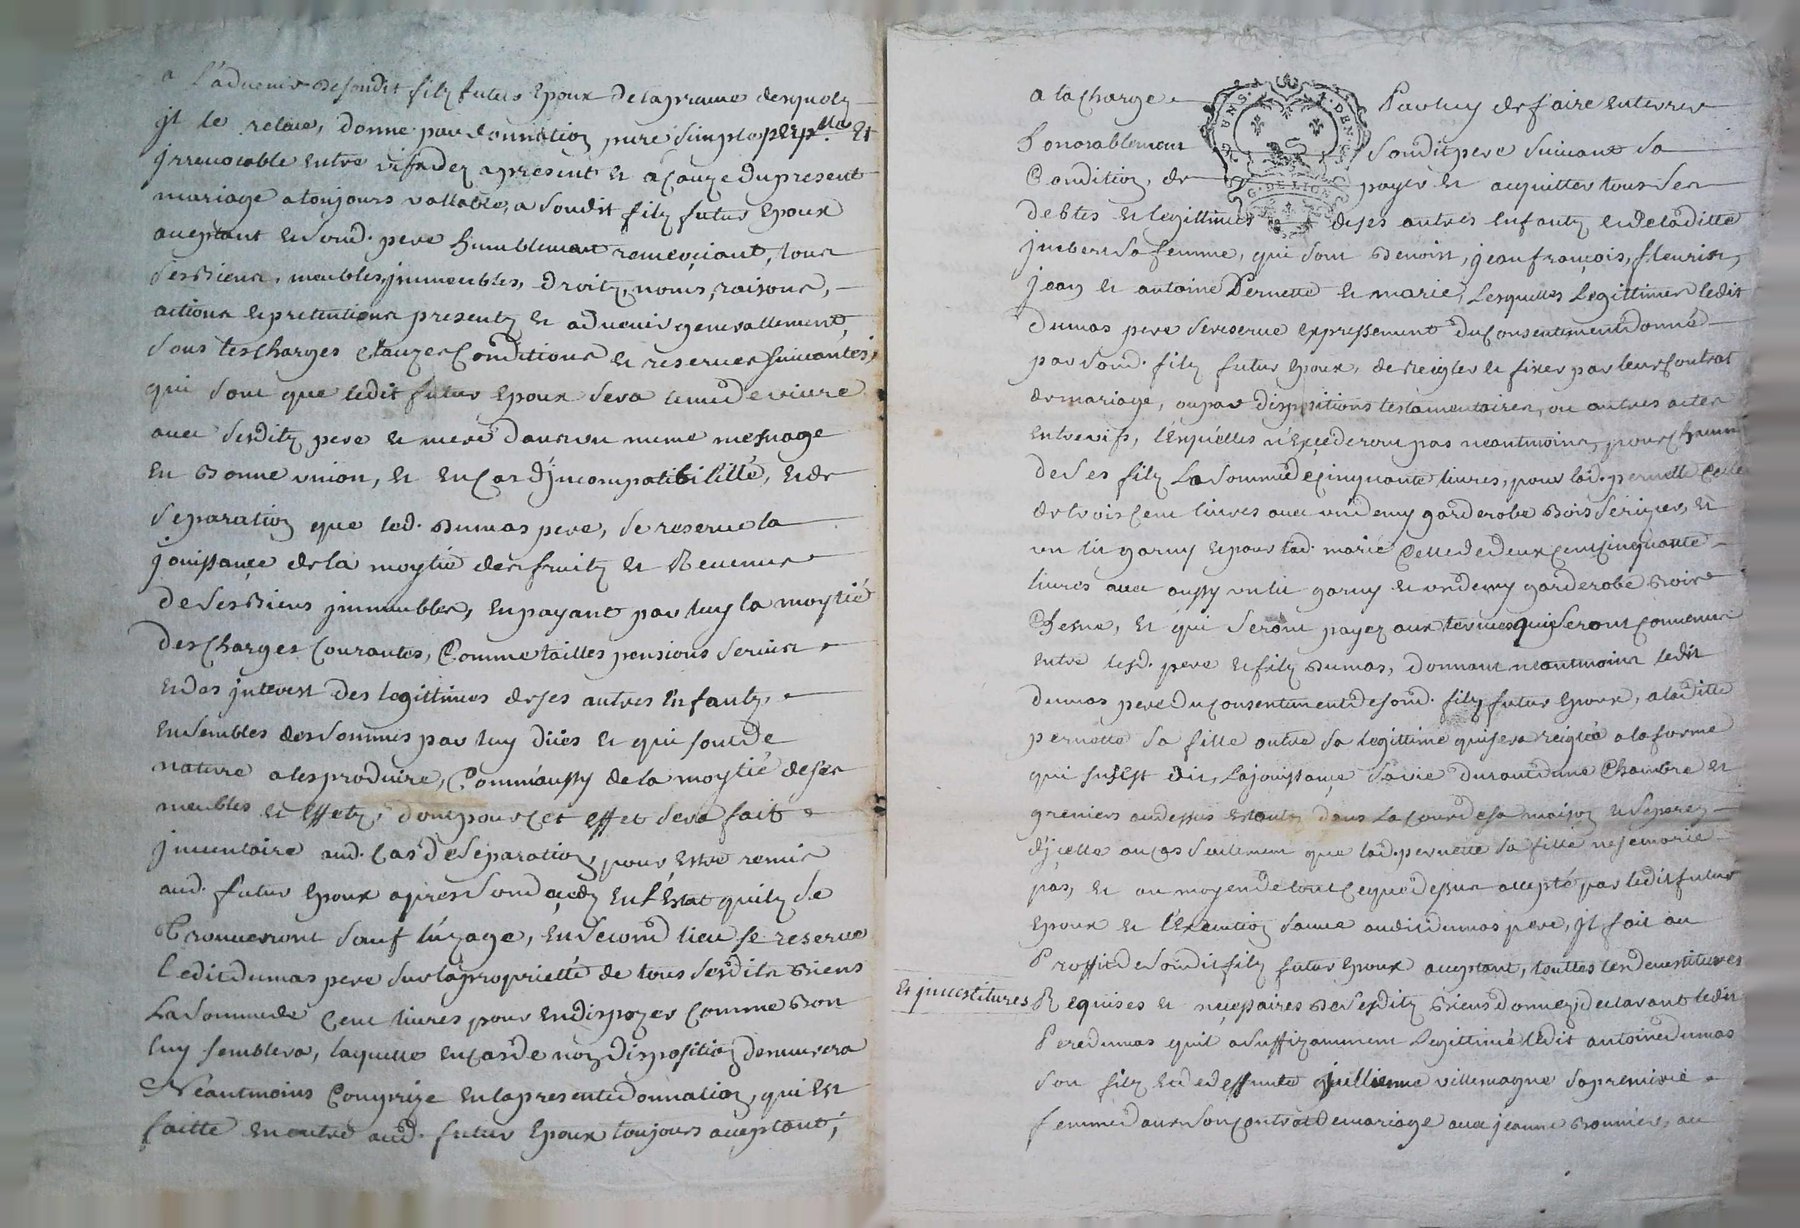 a L'advenir desondit filz futur Epoux de la preuve desquels
jl le releve, donne par donnation pure simple perp.lle Et
jrrevocable entre vifs dez apresent et a cauze du present
mariage a toujours vallable, a sondit filz futur Epoux
aceptant et sond. pere humblement remerciant, tous
ses Biens, meubles, jmmeubles, droitz, noms, raisons,
actions et pretentions presentz et advenir generallement,
sous les charges clauzes Conditions et reserves suivantes,
qui sont que ledit futur Epoux sera tenu de vivre
avec sesditz pere et mere dans un meme mesnage
En Bonne union, et En Cas d'jncompatibillité, et de
separation que led. Dumas pere, se reserve la
jouissance de la moytié des fruitz et Revenus
de ses Biens jmmeubles, En payant par luy la moytié
des Charges Courantes, Comme tailles pensions servis
et des jnterest des legittimes de ses autres Enfantz,
Ensembles des sommes par luy düés et qui sont de
nature a les produire, Comm'aussy de la moytié de ses
meubles et Effetz, dont pour cet effet sera fait
jnventaire aud. Cas de separation, pour Estre remis
aud. futur Epoux apres son deces En L'Estat qu'ilz se
Trouveront sauf l'uzage, En second lieu se reserve
Ledit dumas pere sur la proprietté de tous sesdits Biens
La somme de cent livres pour En dispozer comme Bon
luy semblera, laquelle En cas de non disposition demeurera
Néantmoins Comprize En la presente donnation, qui Est
faitte En outre aud. futur Epoux toujours aceptant,
a la charge par luy de faire Enterrer
honorablement sondit pere suivant sa
Condition, de payer et acquitter tous ses
debtes et legittimes de ses autres Enfantz et de laditte
jmbert sa femme, qui sont Benoist, jean françois, fleurie,
jean et antoine Pernette et marie, Lesquelles Legittimes ledit
dumas pere se reserve Expressement du Consentement donné
par sond. filz futur Epoux, de reigler et fixer par leur Contrat
de mariage, ou par dispositions testamentaires, ou autres actes
Entre vifs, lesquelles n'Excederont pas neantmoins pour chacun
de ses filz La somme de cinquante livres, pour lad. pernette celle
de trois cent livres avec un demy garderobe Bois serizier, et
un lit garny et pour lad. marie Celle de deux cent cinquante
livres avec aussy un lit garny et un demy garderobe Bois
Chesne, et qui seront payez aux termes qui seront convenus
Entre lesd. pere et filz Dumas, donnant neantmoins ledit
dumas pere du consentement de sond. filz futur Epoux, a laditte
pernette sa fille outre sa legittime qui sera reiglée a la forme
que susEst dit, La jouissance sa vie durant d'une Chambre et
greniers au dessus Estants dans La cour de sa maison et separez
d'jcelle au cas seulement que lad. pernette sa fille ne se marie
pas, et au moyen de tout ce que dessus accepté par ledit futur
Epoux et l'Execution sauve audit dumas pere, jl fait au
Proffit de sondit filz futur Epoux aceptant, touttes les devestitures
Et jnvestitures Requises et necessaires de sesditz Biens donnez, declarant ledit
Pere dumas qu'il a suffizamment Legittimé ledit antoine dumas
son filz et de deffunte jullienne villemagne sa premiere
femme dans son contrat de mariage avec jeanne Bonniere, au